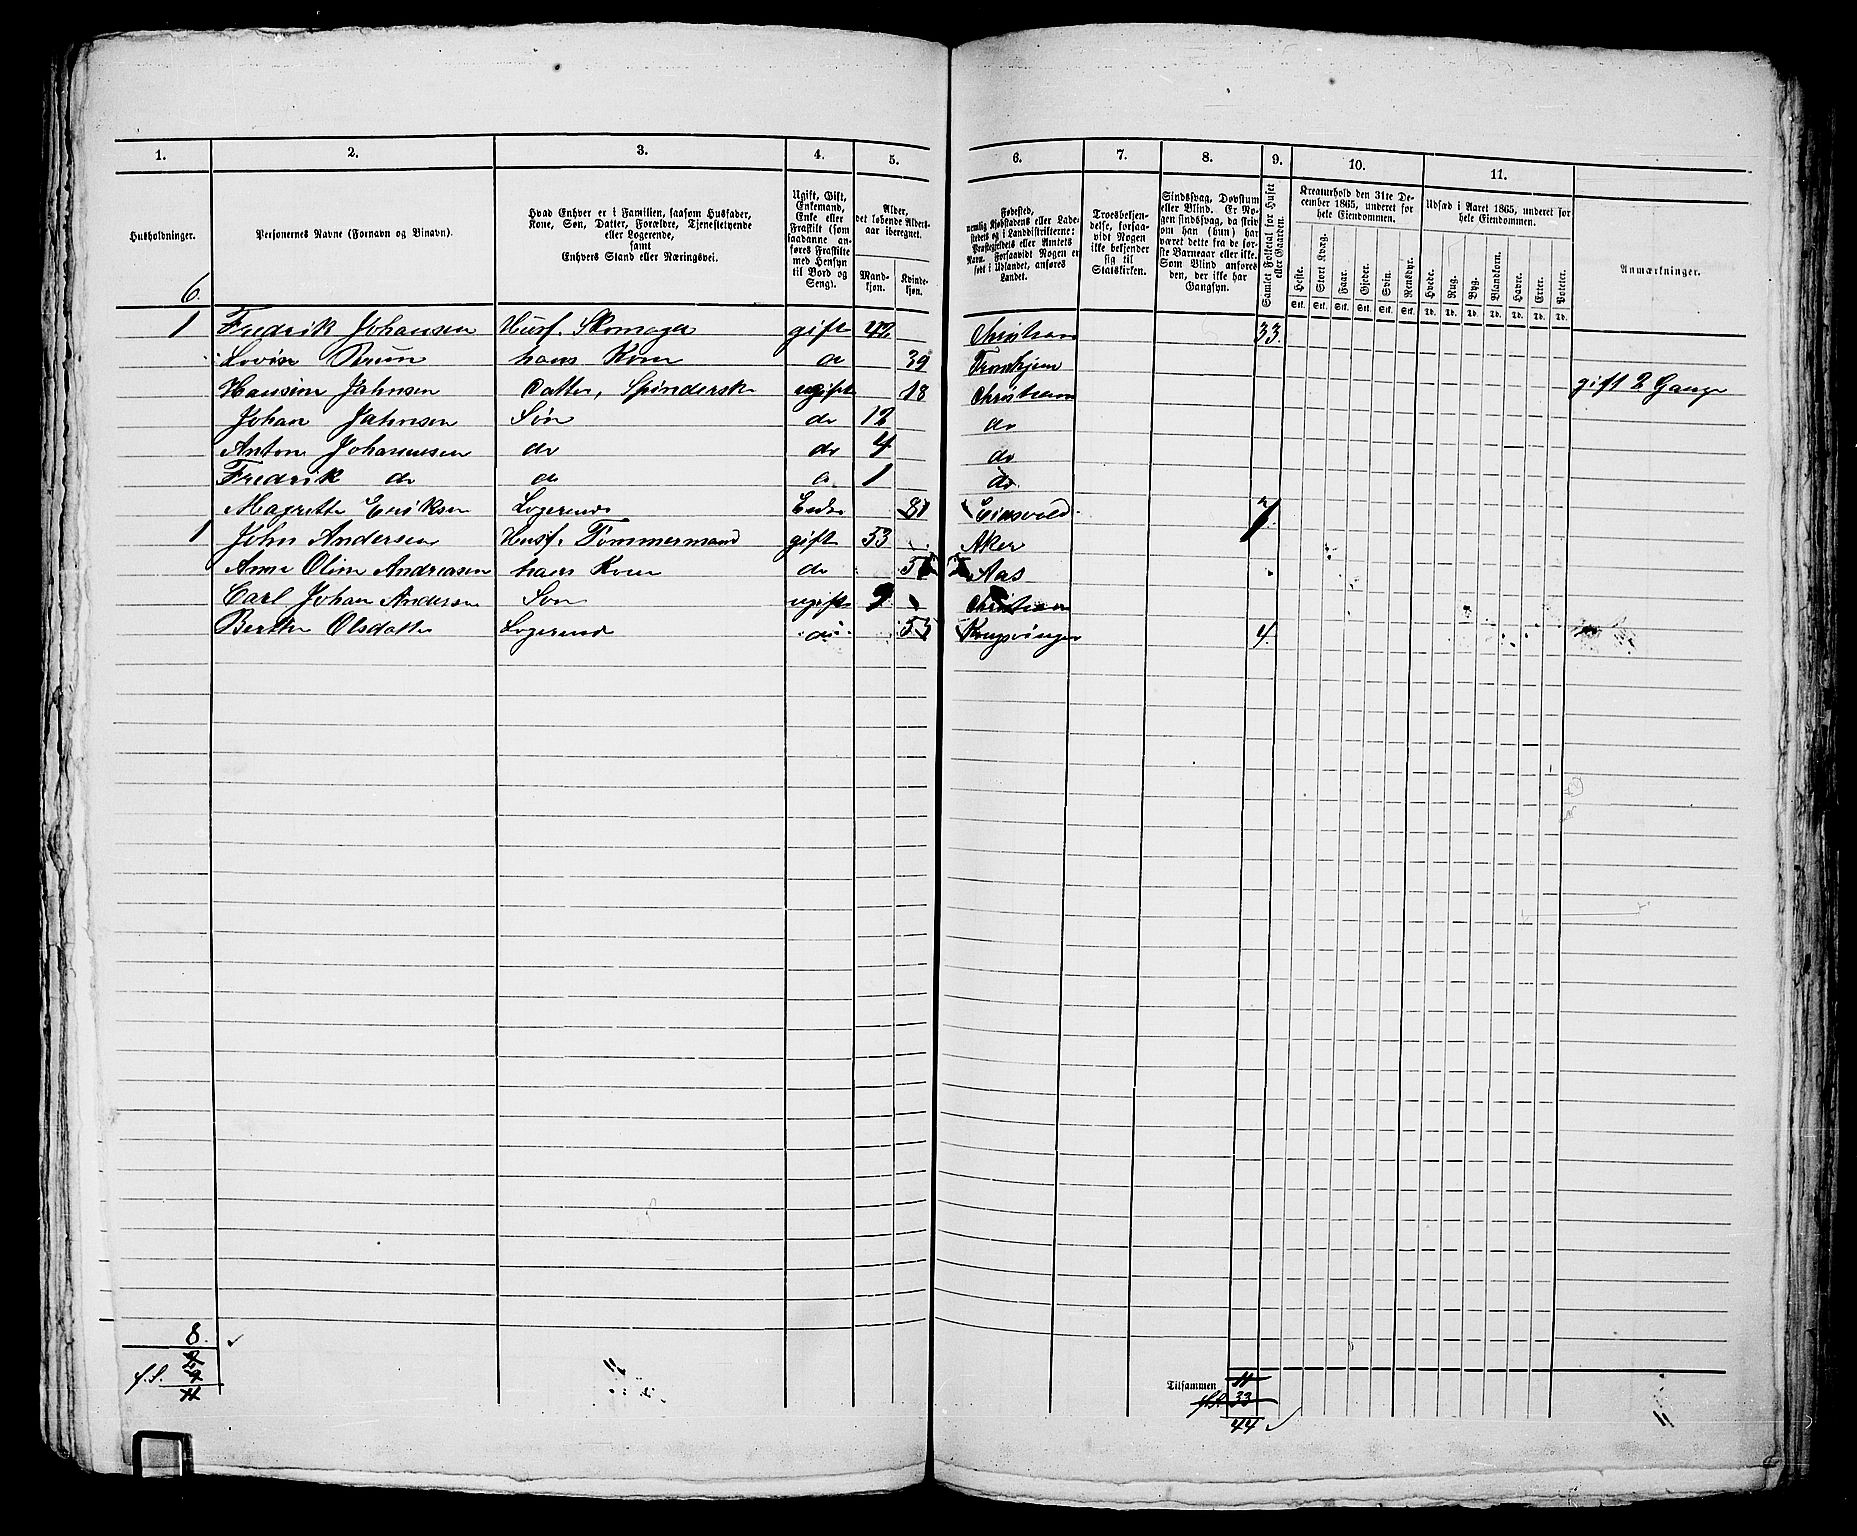 1. 2. 3. 4. 5. 6. 7. 8. 9. 10. 11.
Husholdninger.
Personernes Navne (Fornavn og Binavn).
Hvad Enhver er i Familien, saasom Husfader,
Kone, Søn, Datter, Forældre, Tjenestetyende
eller Logerende,
samt
Enhvers Stand eller Næringsvei.
Ugift, Gift,
Enkemand,
Enke eller
Fraskilt (som
saadanne an-
føres Fraskilte
med Hensyn
til Bord og
Seng).
Alder,
det løbende Alders-
aar iberegnet.
Mand-
kjøn.
Kvinde-
kjøn.
Fødested,
nemlig Kjøbstadens eller Lade-
stedets og i Landdistrikterne:
Præstegjeldets eller Amtets
Navn. Forsaavidt Nogen er
født i Udlandet, anføres
Landet.
Troesbekjen-
delse, forsaa-
vidt Nogen
ikke bekjender
sig til
Statskirken.
Sindssvag, Døvstum
eller Blind. Er No-
gen sindssvag, da skriv
om han (hun) har
været dette fra de før-
ste Barneaar eller ikke.
Som Blind anføres
den, der ikke har
Gangsyn.
Samlet Folketal for Huset
eller Gaarden.
Kreaturhold den 31te De-
cember 1865, underet for
hele Eiendommen.
Heste. Stort Kvæg. Faar. Gjeder. Svin. Rensdyr.
Stk. Stk. Stk. Stk. Stk. Stk.
Udsæd i Aaret 1865, underet for
hele Eiendommen.
Hvede. Rug. Byg. Blandkorn. Havre. Erter. Poteter.
Td. Td. Td. Td. Td. Td. Td.
Anmærkninger.
6.
1 Fredrik Johansen Husf. Skomager gift 42 Christiania 33.
Lovise Bruun hans Kone do 39 Trondhjem
Hansine Jahnsen Datter, Spinderske ugift 18 Christiania gift 2 Gange
Johan Jahnsen Søn do 12 do
Anton Johannesen do do 4 do
Fredrik do do do 1 do
Magrette Eriksen Logerende Enke 81 Eidsvold 7.
1 John Andersen Husf. Tømmermand gift 53 Aker
Anne Oline Andreasen hans Kone do Aas
Carl Johan Andersen Søn ugift 9 Christiania
Berthe Olsdatter Logerende do 53 Kongsvinger 4.
8.
2
f.S. 9
11
Tilsammen 11
33
44